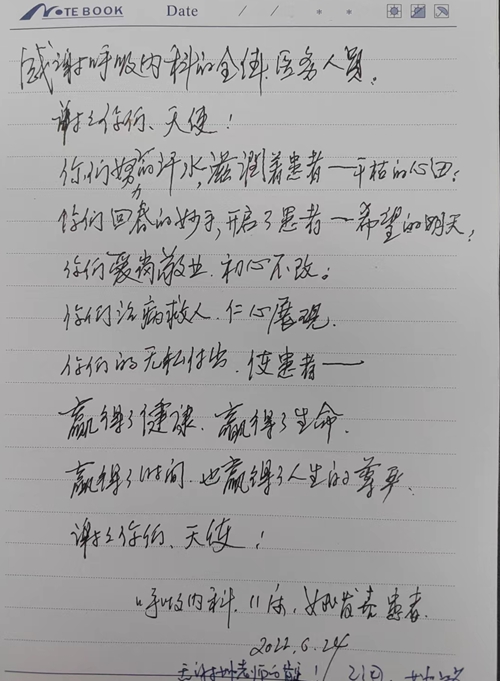 NOTEBOOK Date / / * *
感谢呼吸内科的全体医务人员.
谢谢你们、天使!
你们努力的汗水,滋润着患者一干枯的心田;
你们回春的妙手,开启了患者一希望的明天;
你们爱岗敬业.初心不改。
你们治病救人.仁心展现.
你们的无私付出.使患者一
赢得了健康.赢得了生命.
赢得了时间.也赢得了人生的尊严.
谢谢你们、天使!
呼吸内科.11床, 患者.
2022.6.24
老师